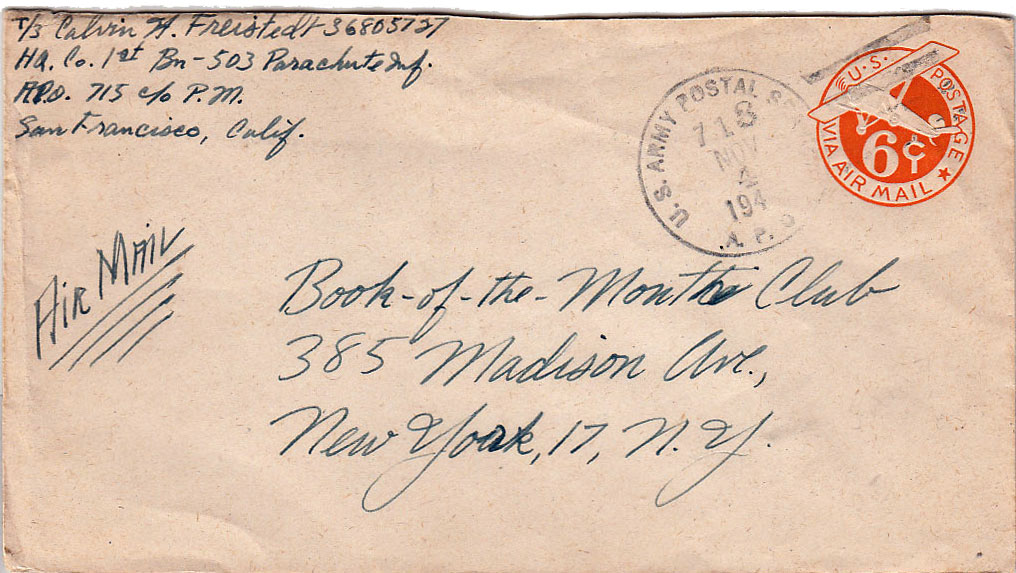 T/3 Calvin H. Freistedt 36805727
Hq. Co. 1st Bn-503 Parachute Inf.
A.P.O. 715 c/o P.M.
San Francisco, Calif.
U.S. ARMY POSTAL
718
NOV
4
194
A. P. O
U.S. POSTAGE
6¢
VIA AIR MAIL
AIR MAIL
Book-of-the-Month Club
385 Madison Ave.,
New York, 17, N.Y.